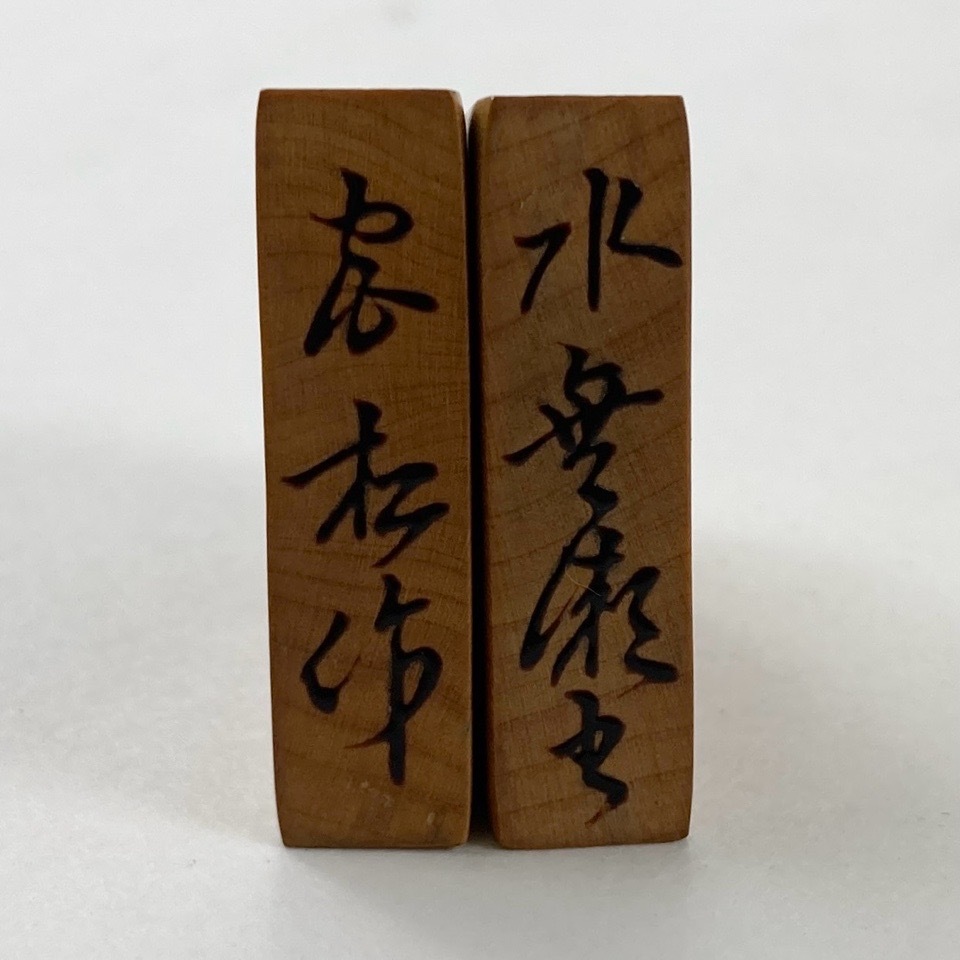 水無瀬書
松作